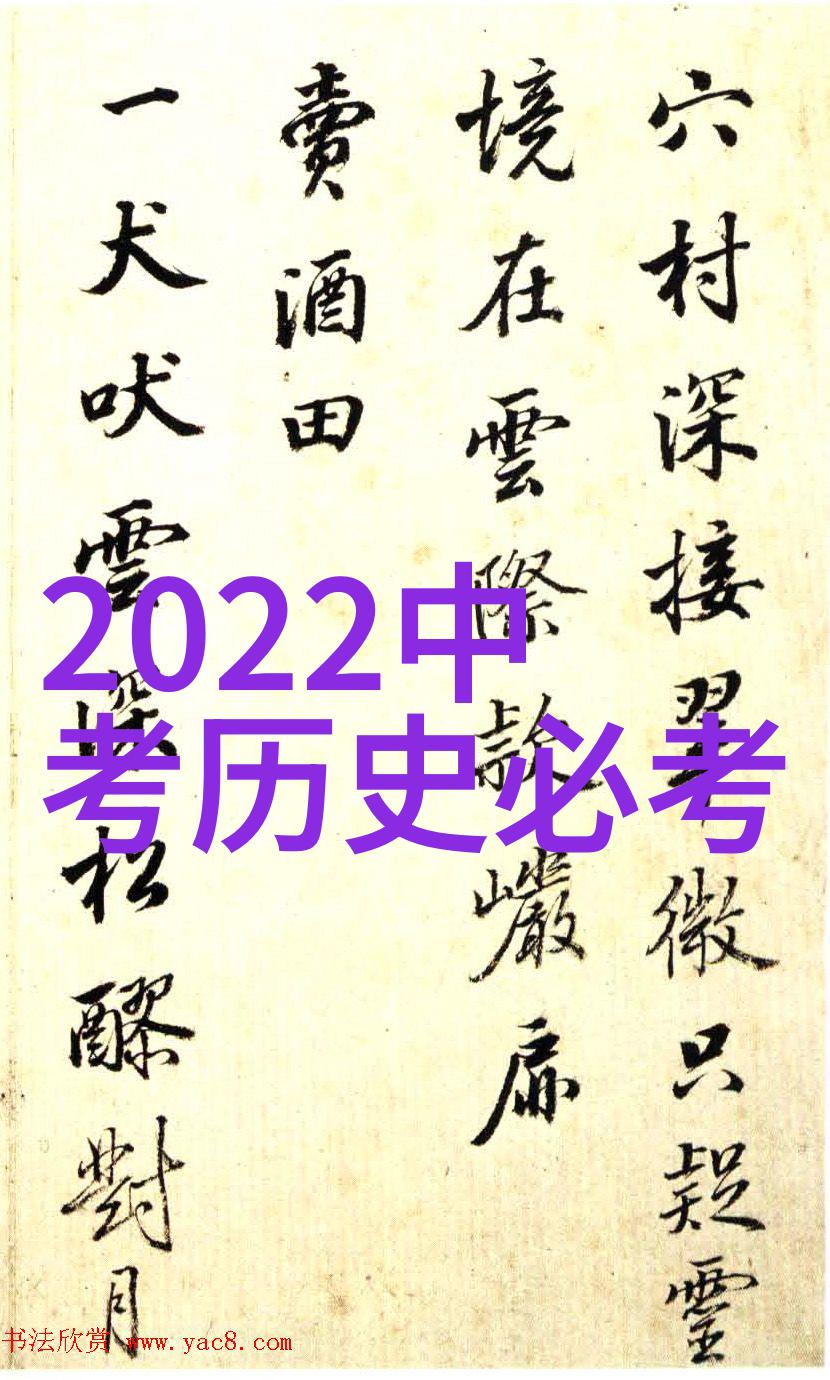 穴村深接翠微只疑靈
境在雲際巖扉
賣酒田
一犬吠雲深松醪對月
2022中
考历史必考
书法欣赏 www.yac8.com